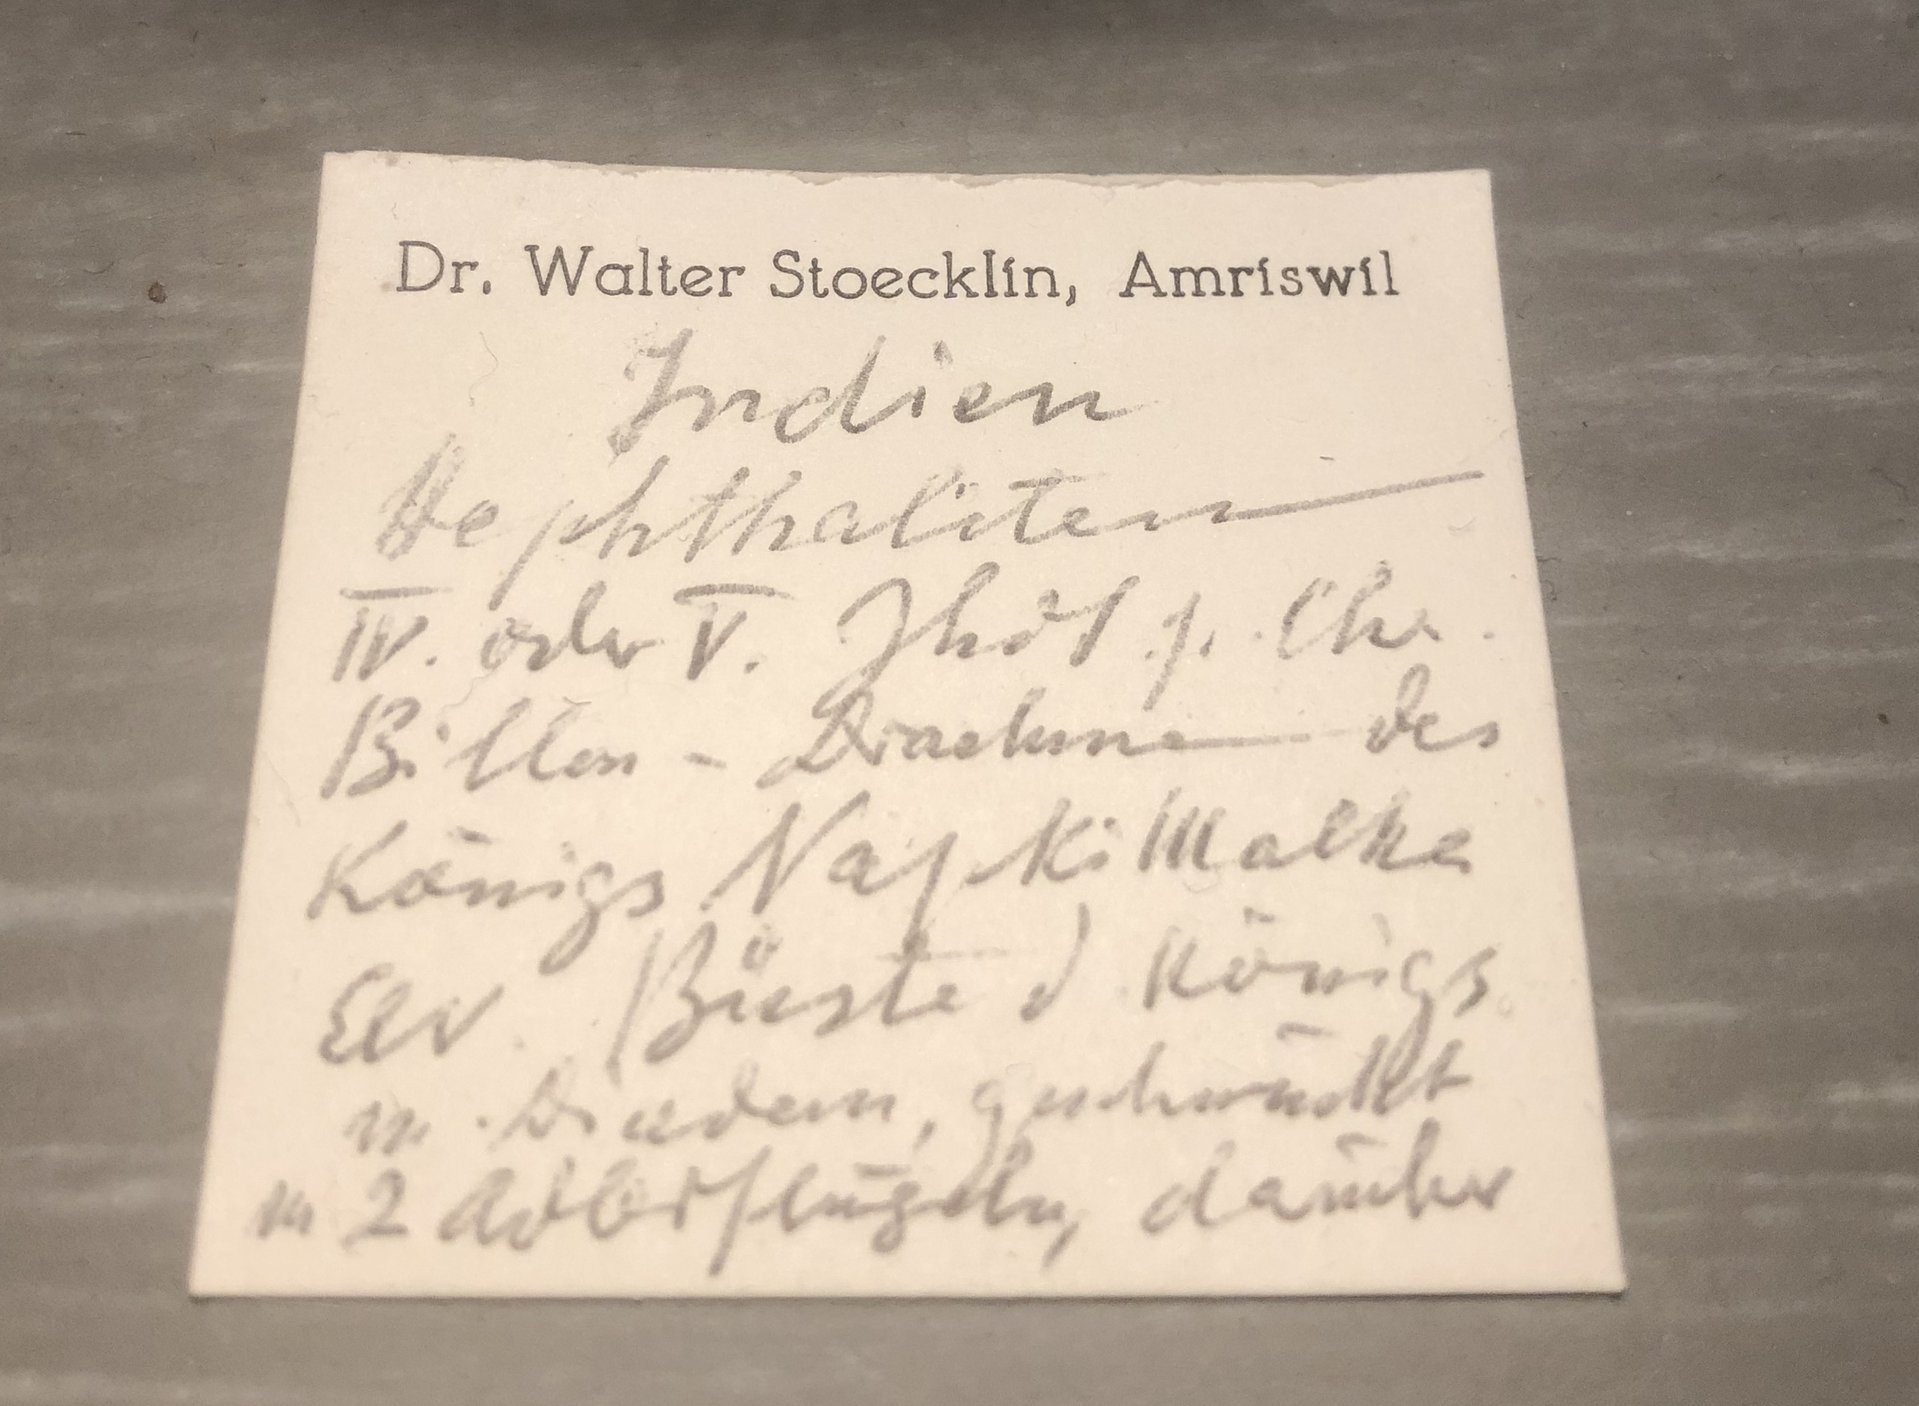 Dr. Walter Stoecklin, Amriswil
Indien
Hephthaliten
IV. oder V. Jhdt p. Chr.
Billon - Drachme des
Königs Napki Malka
Büste d Königs
m. Diadem, geschmückt
m 2 Adlerflügeln, darüber